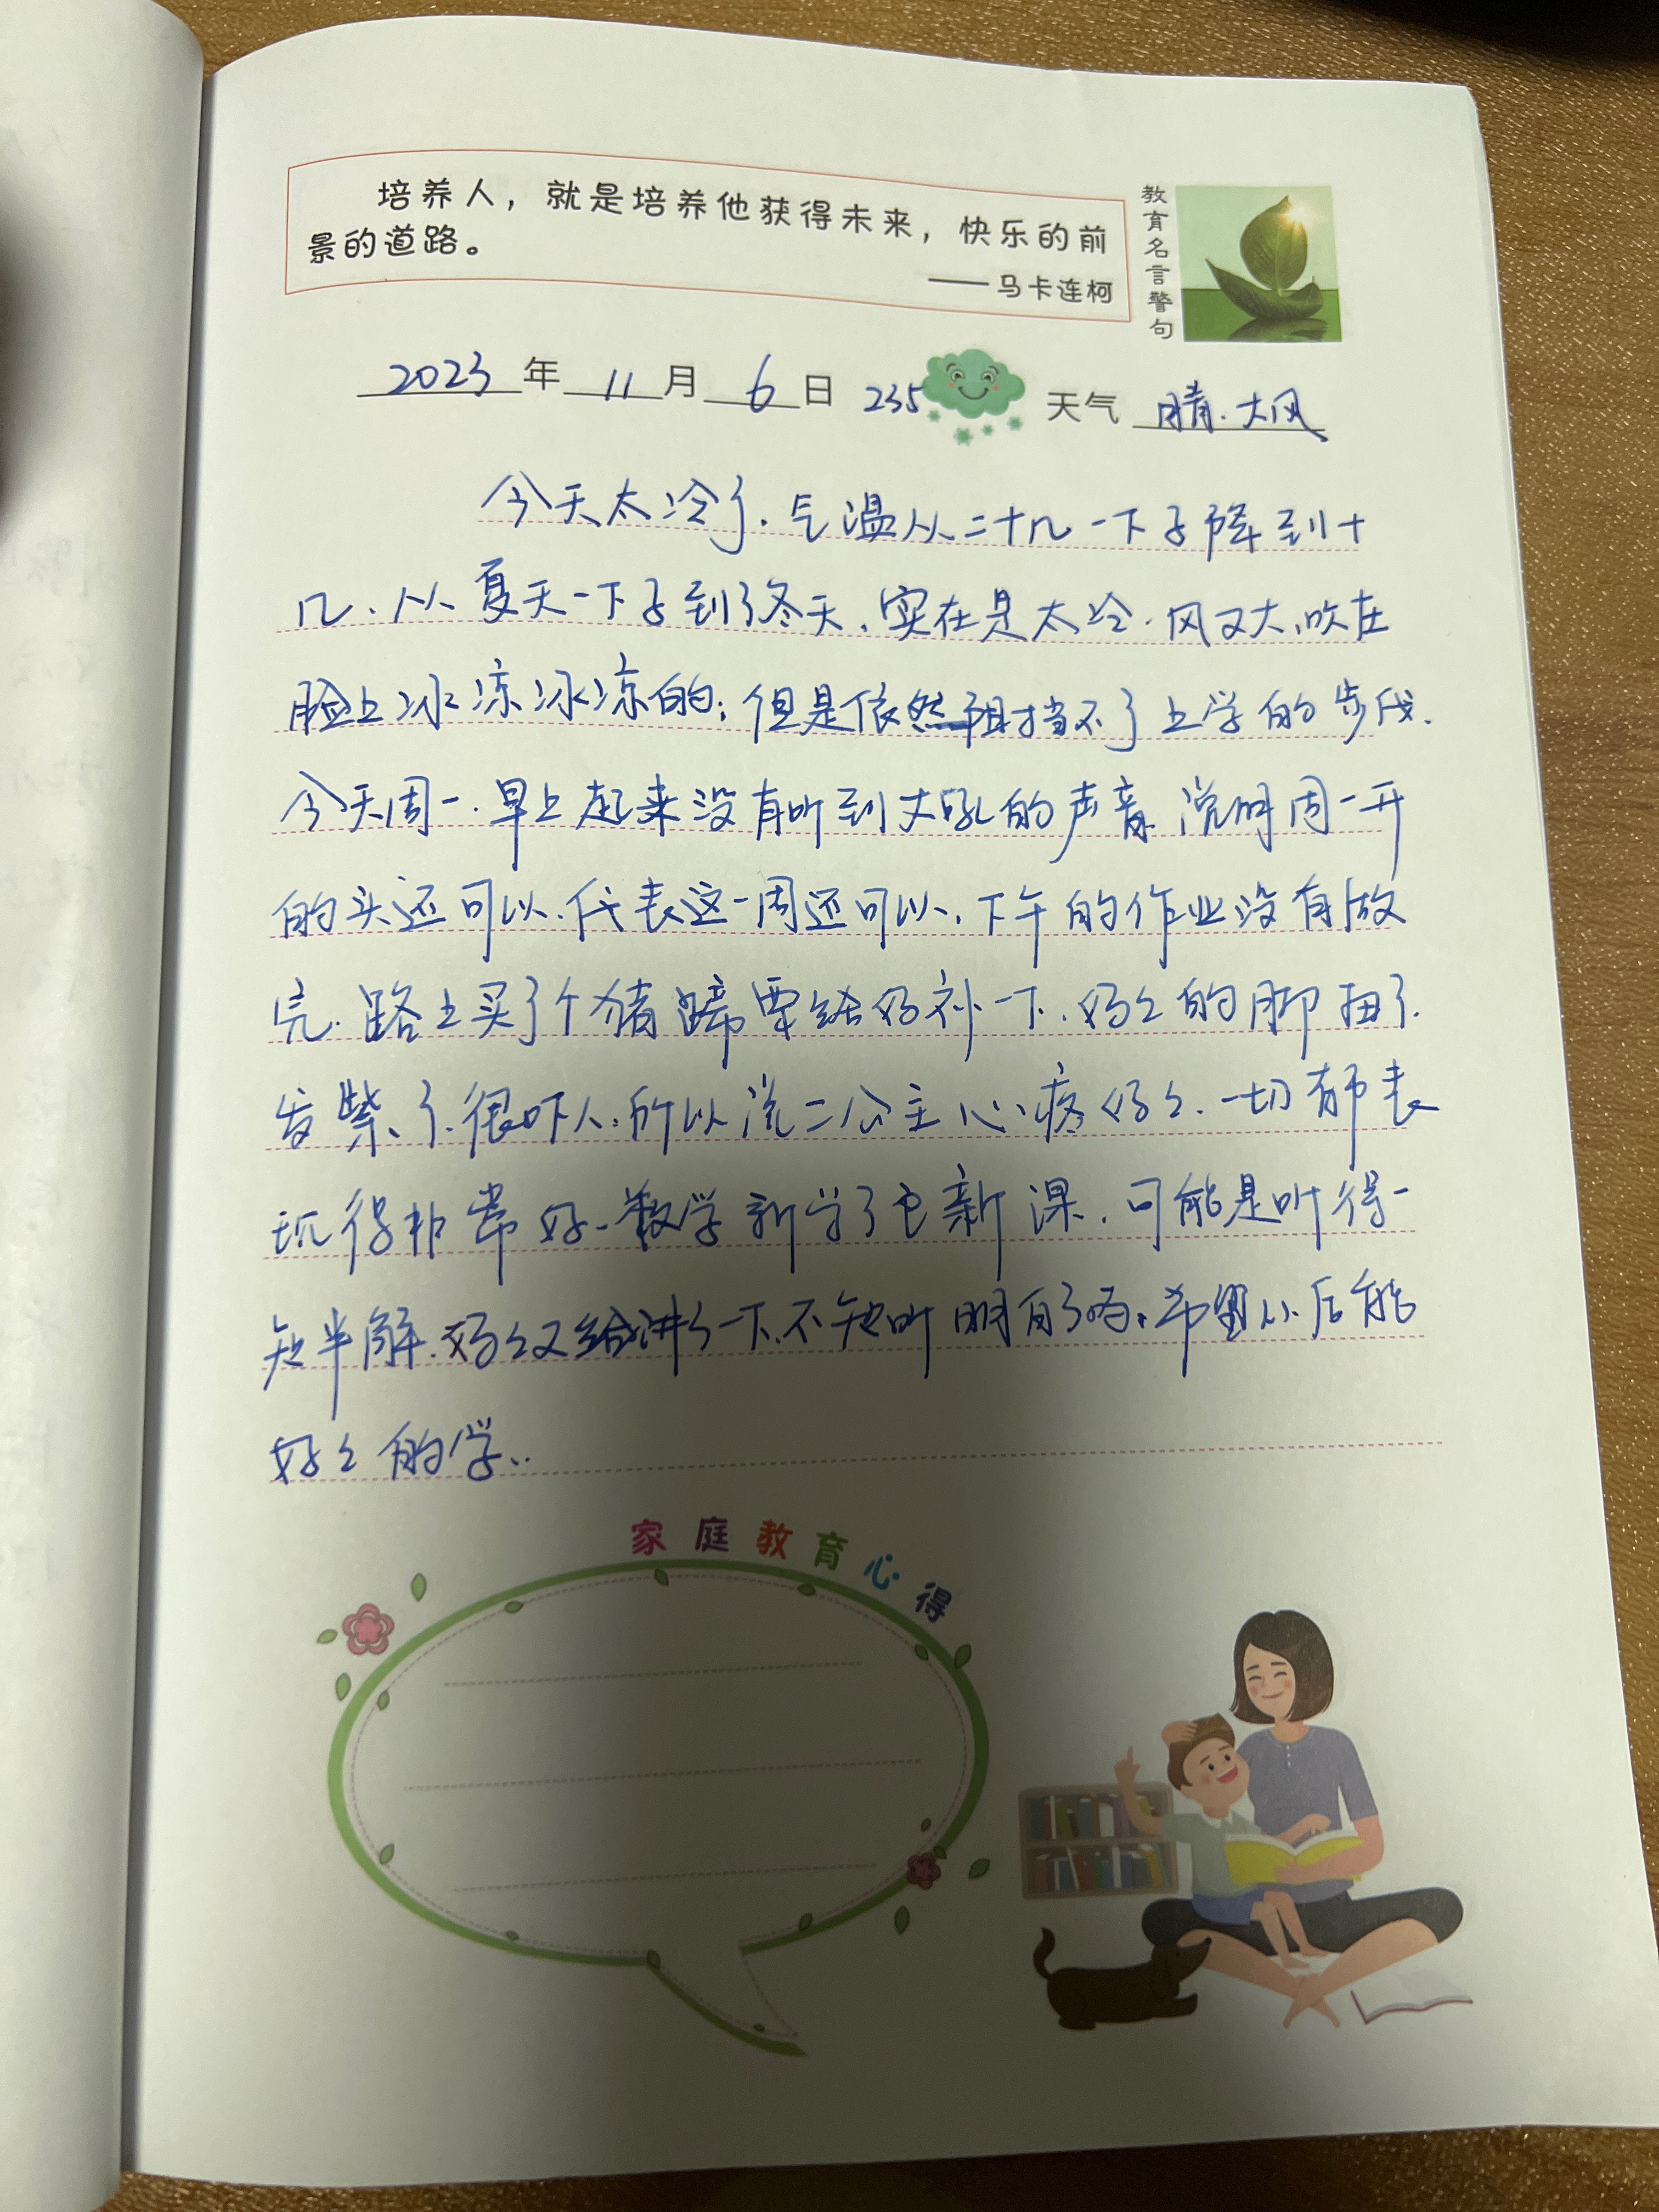 培养人，就是培养他获得未来，快乐的前
景的道路。
——马卡连柯
教育名言警句
2023年11月6日 235 天气 晴.大风
今天太冷了.气温从二十几一下子降到十
几.从夏天一下子到了冬天.实在是太冷.风又大,吹在
脸上冰凉冰凉的;但是依然阻挡不了上学的步伐.
今天周一.早上起来没有听到大吼的声音.说明周一开
的头还可以.代表这一周还可以.下午的作业没有做
完.路上买了个猪蹄要给妈补一下.妈々的脚扭了.
发紫了.很吓人.所以说二公主心疼妈々.一切都表
现得非常好.数学新学了新课.可能是听得一
知半解.妈々又给讲了一下.不知听明白了吗.希望以后能
好々的学..
家庭教育心得